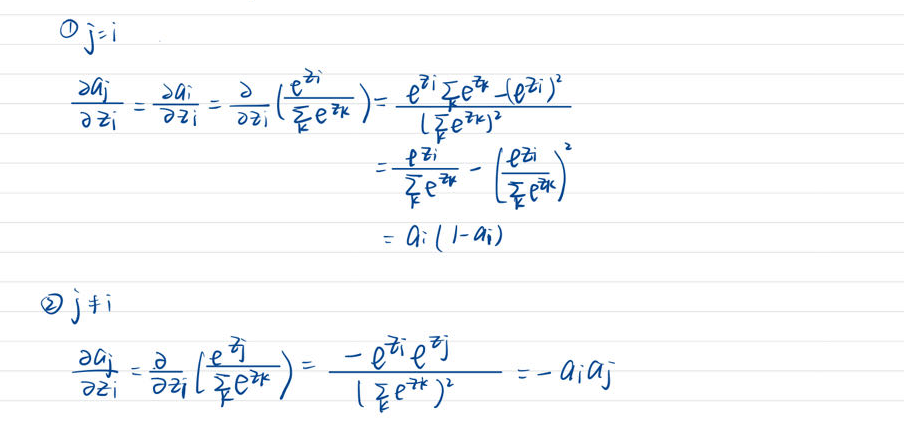 ① j=i
∂aj/∂zi = ∂ai/∂zi = ∂/∂zi (e^zi / Σk e^zk) = (e^zi Σk e^zk - (e^zi)²) / (Σk e^zk)²
= e^zi / Σk e^zk - (e^zi / Σk e^zk)²
= ai(1-ai)
② j≠i
∂aj/∂zi = ∂/∂zi (e^zj / Σk e^zk) = -e^zi e^zj / (Σk e^zk)² = -ai aj